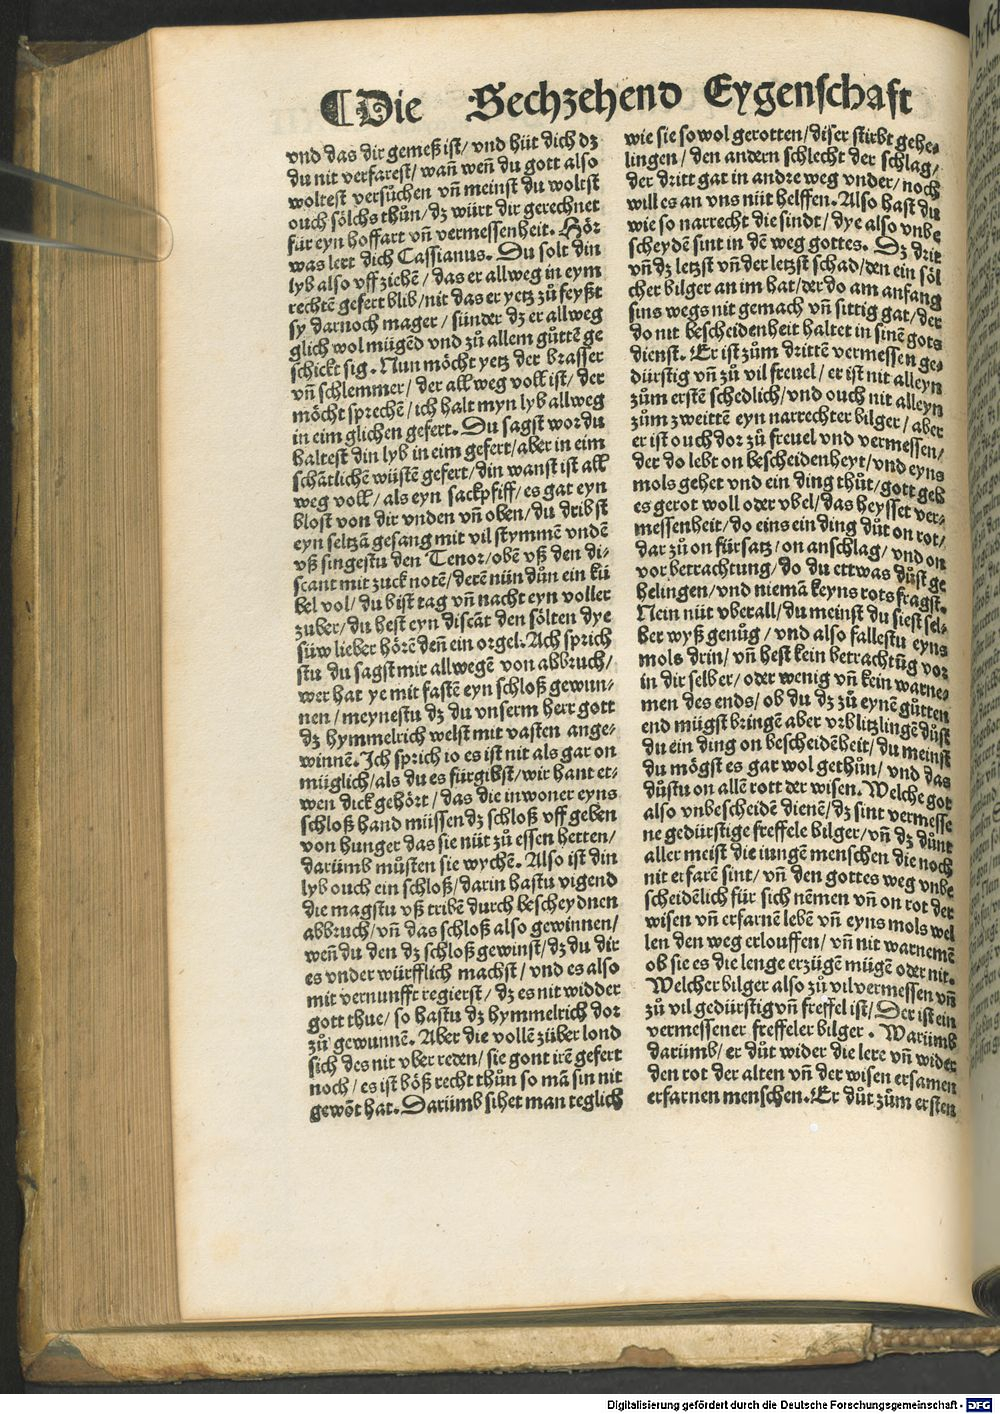 Die Sechzehend Eygenschaft
vnd das dir gemeß ist/ vnd hüt dich dz
du nit verfarest/ wañ weñ du gott also
woltest versůchen vñ meinst du woltst
ouch sölchs thůn/ dz würt dir gerechnet
für eyn hoffart vñ vermessenheit. Hör
was lert dich Cassianus. Du solt din
lyb also vff ziehē/ das er allweg in eym
rechtē gefert blib/ nit das er yetz zů feyßt
sy darnoch mager/ sünder dz er allweg
glich wol mügēd vnd zů allem gůttē ge
schickt sig. Nun möcht yetz der brasser
vñ schlemmer/ der all weg voll ist/ der
möcht sprechē/ ich halt myn lyb allweg
in eim glichen gefert. Du sagst wor du
haltest din lyb in eim gefert/ aber in eim
schātlichē wüstē gefert/ din wanst ist all
weg voll/ als eyn sackpfiff/ es gat eyn
blost von dir vnden vñ oben/ du dribst
eyn seltzā gesang mit vil stymmē vndē
vß singestu den Tenor/ obē vß den di⸗
scant mit zuck notē/ derē nün důn ein kü
bel vol/ du bist tag vñ nacht eyn voller
zuber/ du hest eyn discāt den sölten dye
süw lieber hörē deñ ein orgel. Ach sprich
stu du sagst mir allwegē von abbruch/
wer hat ye mit fastē eyn schloß gewun⸗
nen/ meynestu dz du vnserm herr gott
dz hymmelrich welst mit vasten ange⸗
winnē. Ich sprich io es ist nit als gar on
müglich/ als du es fürgibst/ wir hant et⸗
wen dick gehört/ das die inwoner eyns
schloß hand müssen dz schloß vff geben
von hunger das sie nüt zů essen hetten/
darümb můsten sie wychē. Also ist din
lyb ouch ein schloß/ darin hastu vigend
die magstu vß tribē durch bescheydnen
abbruch/ vñ das schloß also gewinnen/
weñ du den dz schloß gewinst/ dz du dir
es vnder würfflich machst/ vnd es also
mit vernunfft regierst/ dz es nit widder
gott thue/ so hastu dz hymmelrich dor
zů gewunnē. Aber die vollē züber lond
sich des nit vber reden/ sie gont irē gefert
noch/ es ist böß recht thůn so mā sin nit
gewōt hat. Darümb sihet man teglich
wie sie so wol gerotten/ diser stirbt gehe⸗
lingen/ den andern schlecht der schlag/
der dritt gat in andre weg vnder/ noch
will es an vns nüt helffen. Also hast du
wie so narrecht die sindt/ dye also vnbe
scheydē sint in dē weg gottes. Dz drit
vñ dz letzst vñ der letzst schad/ den ein söl
cher bilger an im hat/ der do am anfang
sins wegs nit gemach vñ sittig gat/ der
do nit bescheidenheit haltet in sinē gots
dienst. Er ist zům drittē vermessen ge⸗
dürstig vñ zů vil freuel/ er ist nit alleyn
zům erstē schedlich/ vnd ouch nit alleyn
zům zweittē eyn narrechter bilger/ aber
er ist ouch dor zů freuel vnd vermessen/
der do lebt on bescheidenheyt/ vnd eyns
mols gehet vnd ein ding thůt/ gott geb
es gerot woll oder vbel/ das heysset ver⸗
messenheit/ do eins ein ding důt on rot/
dar zů on fürsatz/ on anschlag/ vnd on
vor betrachtung/ do du ettwas důst ge
helingen/ vnd niemā keyns rots fragst.
Nein nüt vberall/ du meinst du siest sel⸗
ber wyß genůg/ vnd also fallestu eyns
mols drin/ vñ hest kein betrachtūg vor
in dir selber/ oder wenig vñ kein warne⸗
men des ends/ ob du dz zů eynē gůtten
end mügst bringē aber vrblitzlingē důst
du ein ding on bescheidēheit/ du meinst
du mögst es gar wol gethůn/ vnd das
důstu on allē rott der wisen. Welche got
also vnbescheidē dienē/ dz sint vermesse
ne gedürstige freffele bilger/ vñ dz důnt
aller meist die iungē menschen die noch
nit erfarē sint/ vñ den gottes weg vnbe
scheidēlich für sich nēmen vñ on rot der
wisen vñ erfarnē lebē vñ eyns mols wel
len den weg erlouffen/ vñ nit warnemē
ob sie es die lenge erzügē mügē oder nit.
Welcher bilger also zů vil vermessen vñ
zů vil gedürstig vñ freffel ist/ Der ist ein
vermessener freffeler bilger. Warümb
darümb/ er důt wider die lere vñ wider
den rot der alten vñ der wisen ersamen
erfarnen menschen. Er důt zům ersten
Digitalisierung gefördert durch die Deutsche Forschungsgemeinschaft - DFG